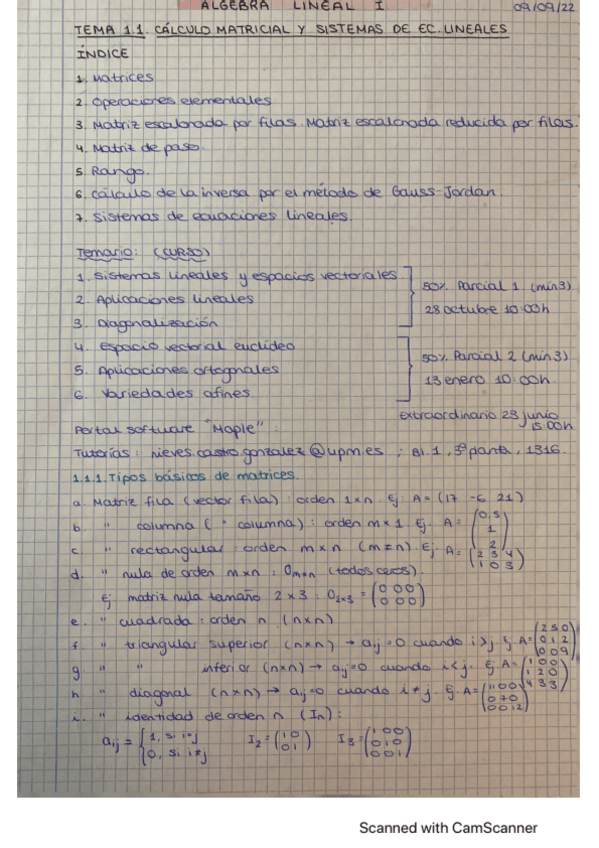 ALGEBRA LINEAL I 09/09/22
TEMA 1.1. CÁLCULO MATRICIAL Y SISTEMAS DE EC. LINEALES
ÍNDICE
1. Matrices
2. Operaciones elementales
3. Matriz escalonada por filas. Matriz escalonada reducida por filas.
4. Matriz de paso.
5. Rango.
6. Cálculo de la inversa por el método de Gauss-Jordan.
7. Sistemas de ecuaciones lineales.
Temario: (CURSO)
1. Sistemas lineales y espacios vectoriales
2. Aplicaciones lineales
3. Diagonalización
50% Parcial 1 (mín 3)
28 octubre 10:00h
4. Espacio vectorial euclídeo
5. Aplicaciones ortogonales
6. Variedades afines
50% Parcial 2 (mín 3)
13 enero 10:00h
Extraordinario 23 junio
15:00h
Portal software "Maple" :
Tutorías: nieves.castro.gonzalez@upm.es ; Bl. 1, 3ª planta, 1316.
1.1.1. Tipos básicos de matrices.
a. Matriz fila (vector fila) : orden 1xn. Ej: A = (17 -6 21)
b. " columna ( " columna) : orden mx1. Ej. A = (0,5 1 2)
c. " rectangular : orden mxn (m≠n). Ej: A = (2 3 4 1 0 3)
d. " nula de orden mxn : Omxn (todos ceros).
Ej. matriz nula tamaño 2x3 : O2x3 = (0 0 0 0 0 0)
e. " cuadrada : orden n (nxn)
f. " triangular superior (nxn) → aij = 0 cuando i>j Ej. A = (2 5 0 0 1 2 0 0 9)
g. " " inferior (nxn) → aij=0 cuando i<j. Ej. A = (1 0 0 1 2 0 4 3 3)
h. " diagonal (nxn) → aij=0 cuando i≠j. Ej. A = (11 0 0 0 70 0 0 12)
i. " identidad de orden n (In) :
aij = {1, si i=j 0, si i≠j I2 = (1 0 0 1) I3 = (1 0 0 0 1 0 0 0 1)
Scanned with CamScanner